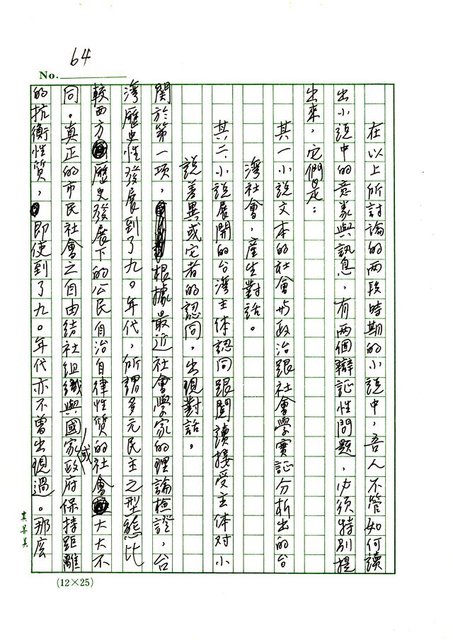 64
No.
在以上所討論的兩段時期的小說中，吾人不管如何讀
出小說中的意義與訊息，有兩個辯証性問題，必須特別提
出來，它們是：
其一、小說文本的社會與政治跟社會學實証分析出的台
灣社會，產生對話。
其二、小說展開的台灣主体認同跟閱讀接受主体對小
說善異或定者的認同，出現對話。
關於第一項，根據最近社會學家的理論檢證，台
灣歷史性發展到了九〇年代，所謂多元民主之型態比
較西方歷史發展下的公民自治自律性質的社會大大不
同。真正的市民社會之自由結社組織與國家或政府保持距離
的抗衡性質，即使到了九〇年代亦不曾出現過。那麼
(12×25)